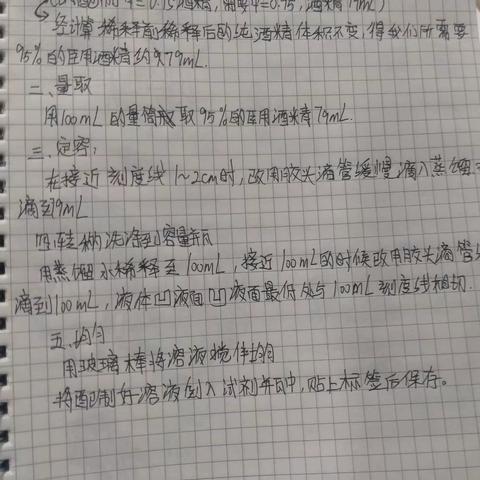 φ=0.75,酒精79mL)
经计算稀释前稀释后的纯酒精体积不变,得我们所需要
95%的医用酒精约为79mL.
二、量取
用100mL的量筒取95%的医用酒精79mL.
三、定容:
在接近刻度线1~2cm时,改用胶头滴管缓慢滴入蒸馏
滴到79mL
四、转移洗净到容量瓶
用蒸馏水稀释至100mL,接近100mL的时候改用胶头滴管
滴到100mL,液体凹液面凹液面最低处与100mL刻度线相切.
五、均匀
用玻璃棒将溶液搅伴均匀
将配制好溶液倒入试剂瓶中,贴上标签后保存。